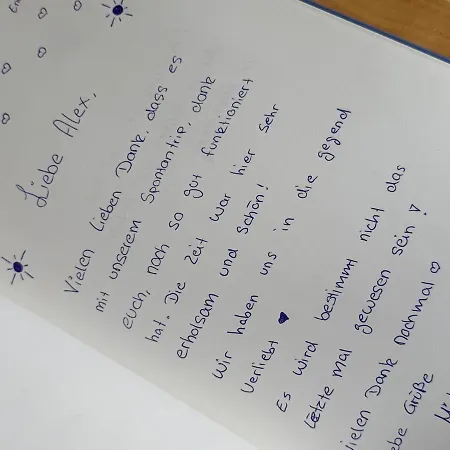 Liebe Alex,
Vielen Lieben Dank, dass es
mit unserem Spontantrip, dank
euch, noch so gut funktioniert
hat. Die Zeit war hier sehr
erholsam und schön!
Wir haben uns in die gegend
Verliebt ♥
Es wird bestimmt nicht das
Letzte mal gewesen sein!
Vielen Dank nochmal ♡
Liebe Grüße